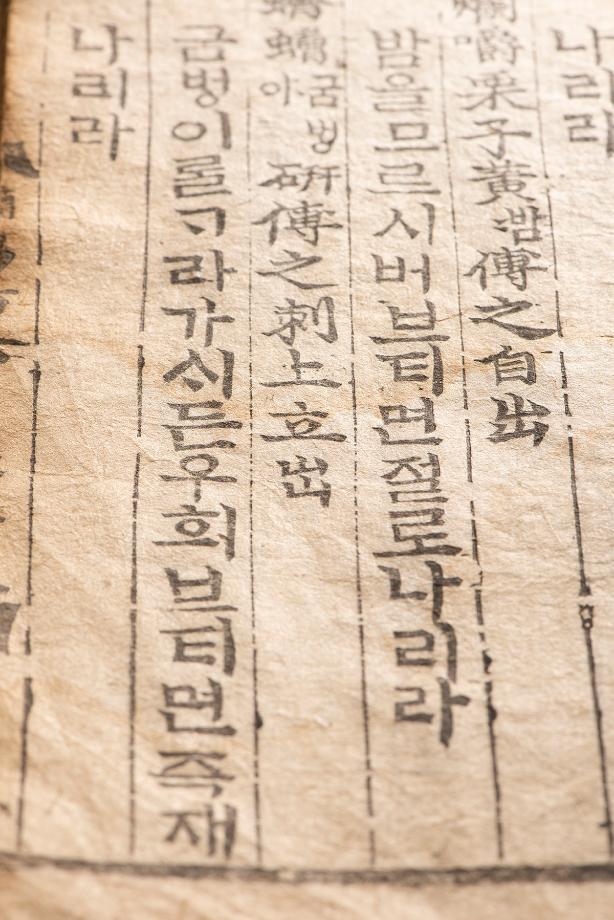 나리라
嚼栗子黃밤傳之自出
밤을므르시버브티면절로나리라
螬굼벙아硏傳之刺上立出
굼벙이롤ᄀᆞ라가싀든우희브티면즉재
나리라